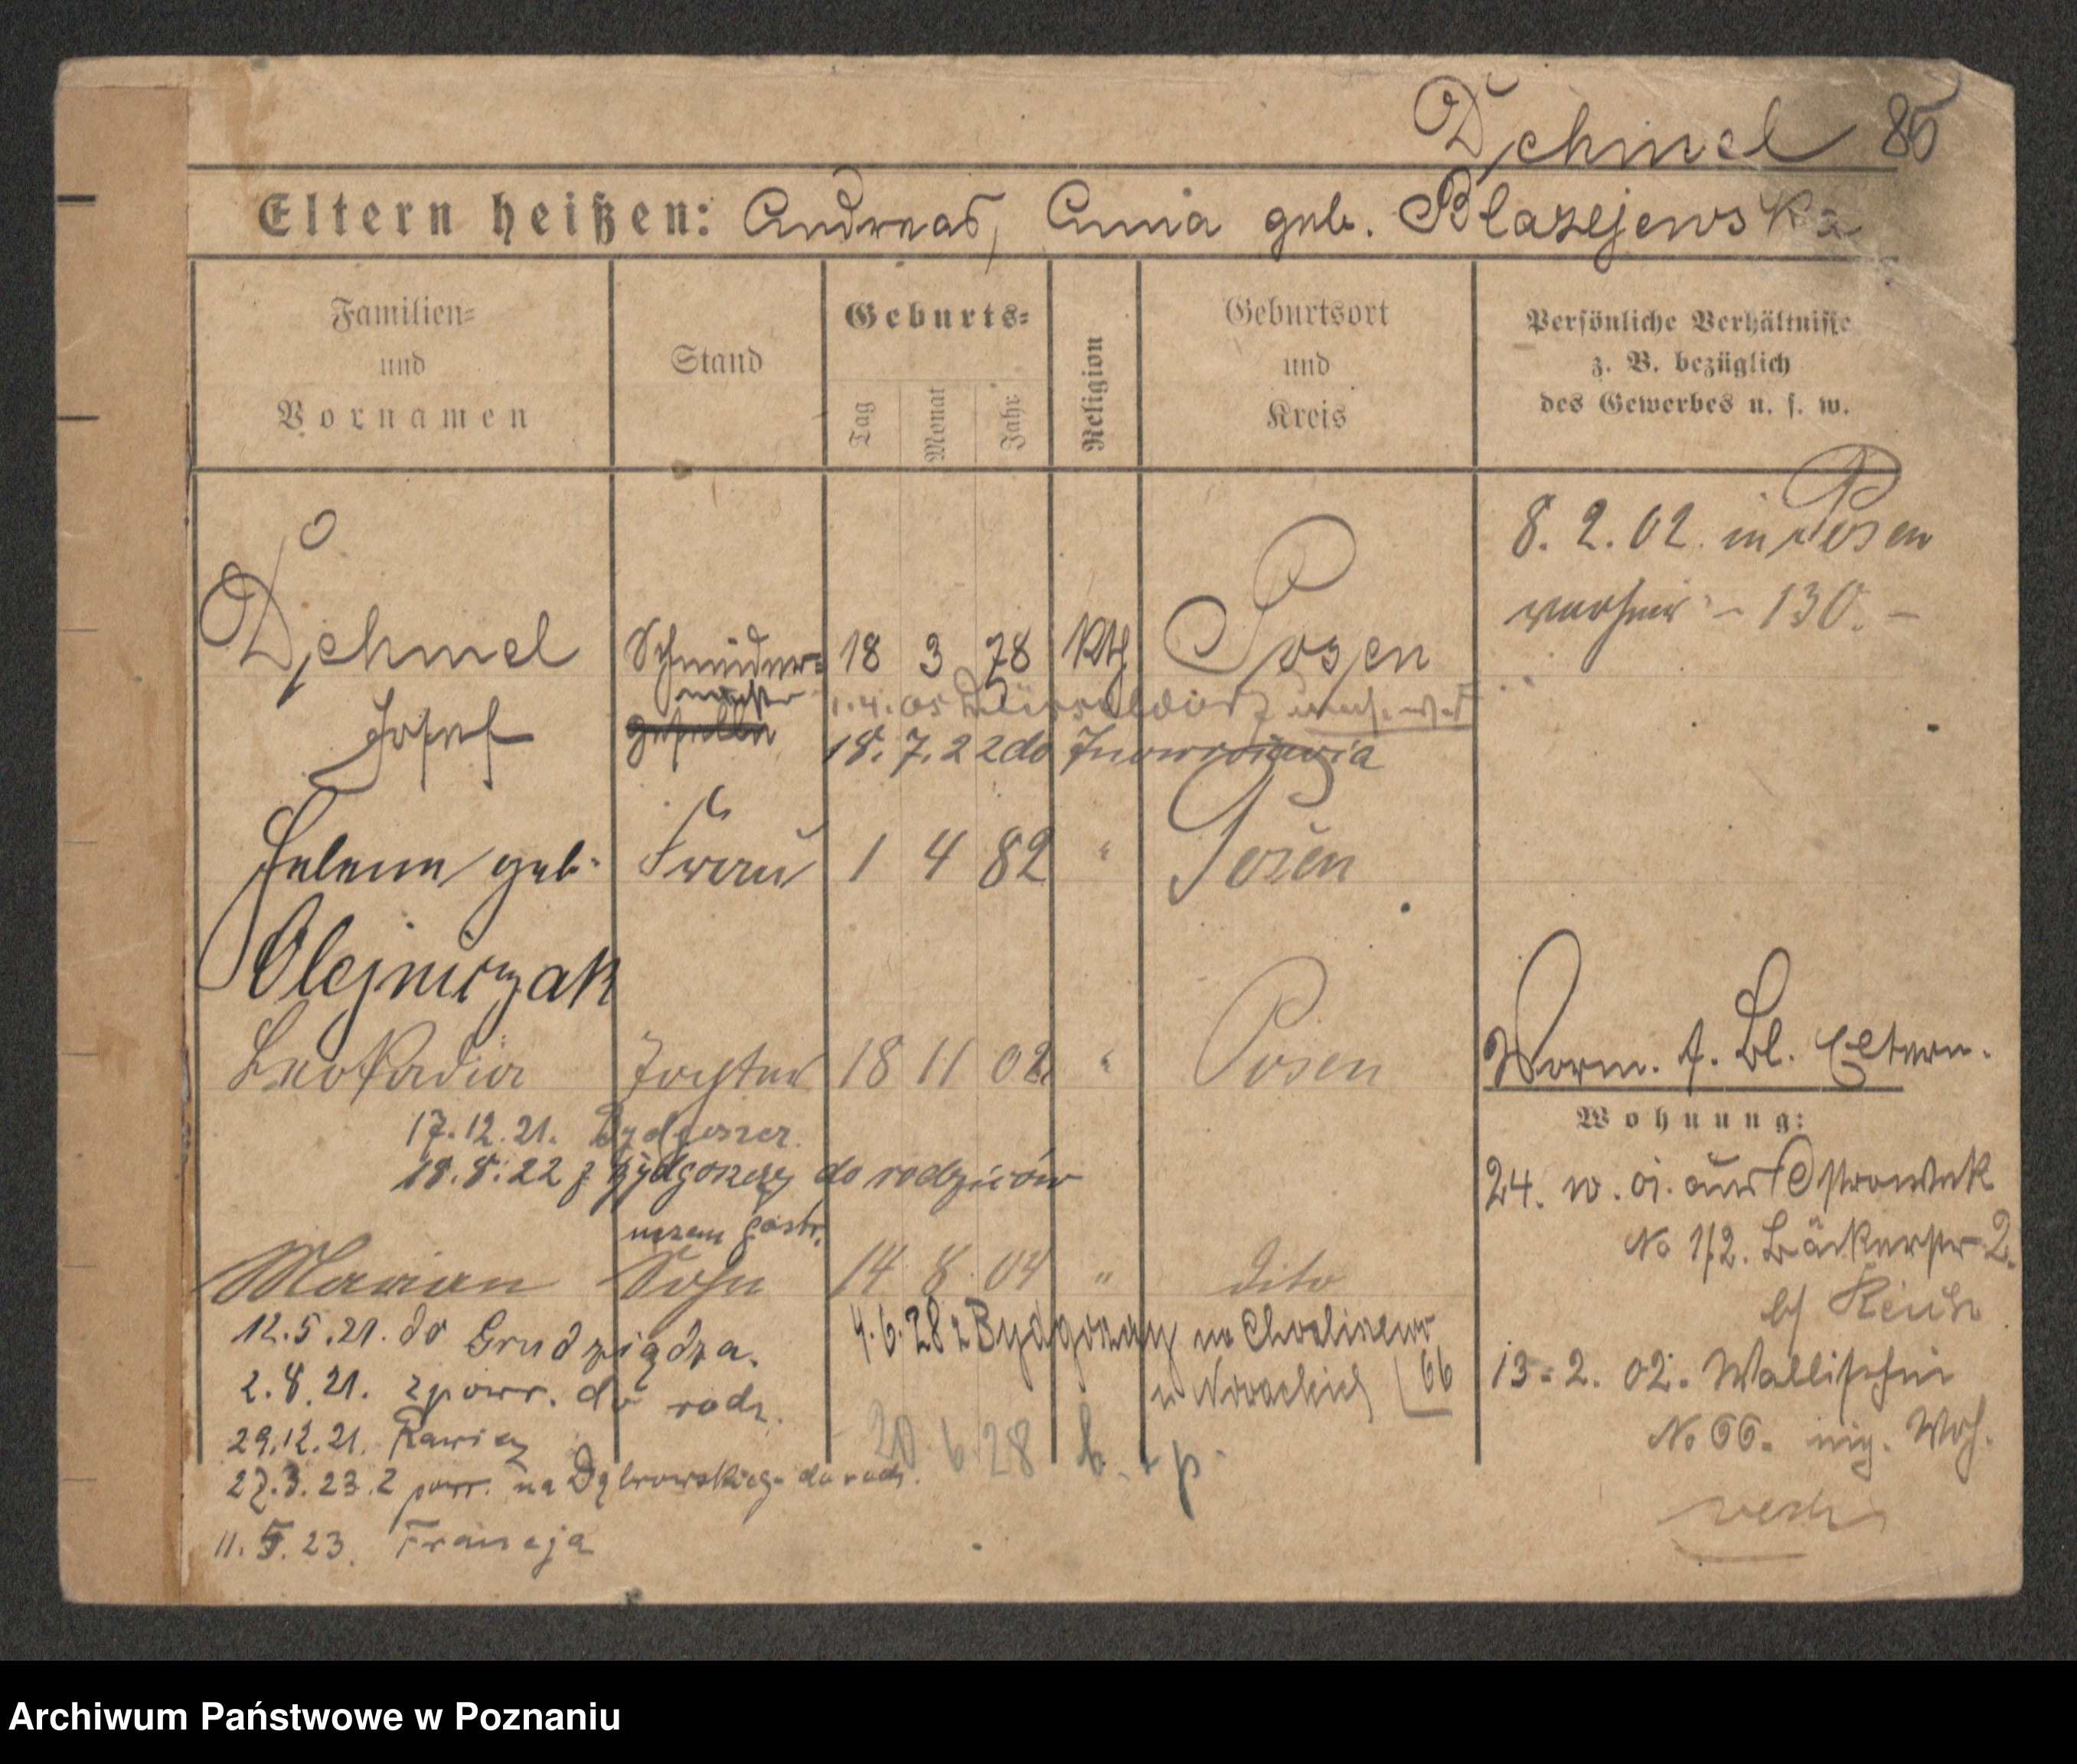 Dehmel 85
Eltern heißen: Andreas, Anna geb. Blazejewska
Familien=
und
Vornamen
Stand
Geburts=
Tag
Monat
Jahr
Religion
Geburtsort
und
Kreis
Persönliche Verhältnisse
z. B. bezüglich
des Gewerbes u. s. w.
8. 2. 02. in Posen
130. –
Dehmel
Josef
Schneider=
meister
geselle
18 3 78 Kth Posen
1. 4. 05 Düsseldorf
18. 7. 22 do Inowrocławia
Helene geb. Frau 1 4 82 " Posen
Olejniczak
Leokadia Tochter 18 11 02 " Posen
17. 12. 21. Bydgoszcz
18. 8. 22 z Bydgoszczy do rodziców
uczeń gastr.
Marian Sohn 14 8 04 " dito
12. 5. 21. do Grudziądza.
2. 8. 21. z powr. do rodz.
29. 12. 21. Rawicz
27. 3. 23. z powr. na Dąbrowskiego do rodz.
11. 5. 23. Francja
4. 6. 28 z Bydgoszczy na Chwaliszewo
u Nowackich 66
20. 6. 28
Worm. f. Bl. Eltern.
Wohnung:
24. 10. 01. aus Ostrowek
No 1/2. Bäckerstr 2.
13. 2. 02. Wallischei
No 66. eig. Woh.
Archiwum Państwowe w Poznaniu